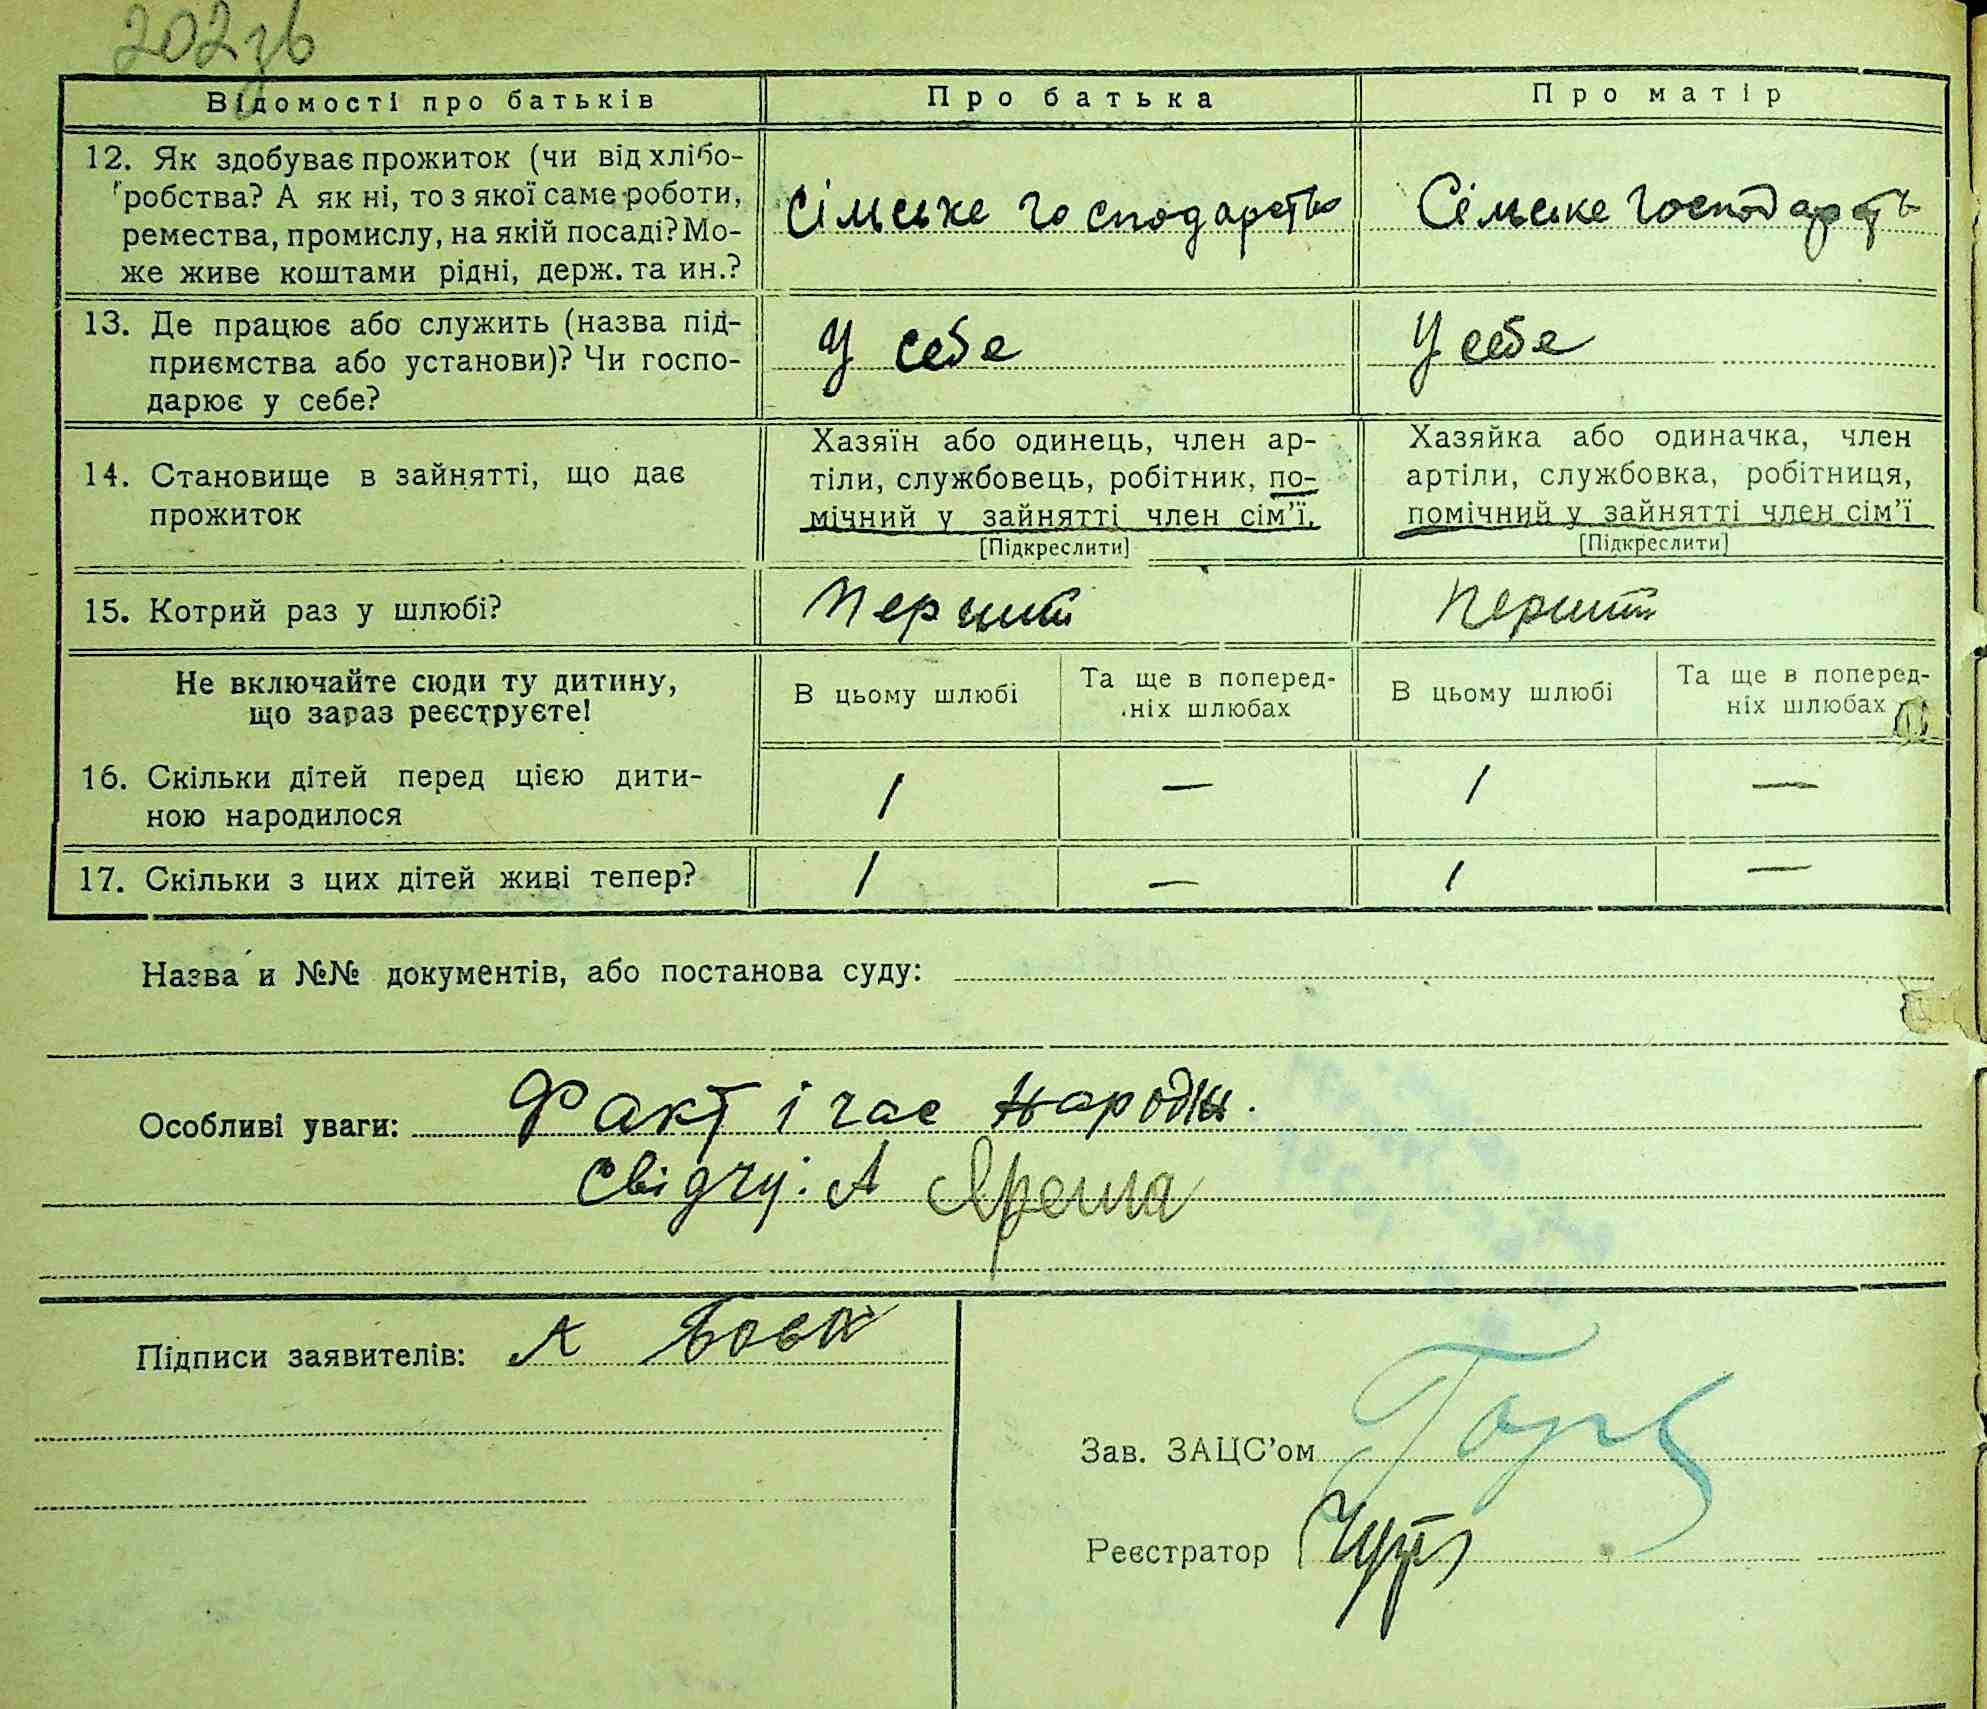 202зв
Відомості про батьків
Про батька
Про матір
12. Як здобуває прожиток (чи від хлібо-
робства? А як ні, то з якої саме роботи,
ремества, промислу, на якій посаді? Мо-
же живе коштами рідні, держ. та ин.?
Сільське господарство
Сільське господарств
13. Де працює або служить (назва під-
приємства або установи)? Чи госпо-
дарює у себе?
У себе
У себе
14. Становище в зайнятті, що дає
прожиток
Хазяїн або одинець, член ар-
тіли, службовець, робітник, по-
мічний у зайнятті член сім'ї.
[Підкреслити]
Хазяйка або одиначка, член
артіли, службовка, робітниця,
помічний у зайнятті член сім'ї
[Підкреслити]
15. Котрий раз у шлюбі?
Перший
Перший
Не включайте сюди ту дитину,
що зараз реєструєте!
В цьому шлюбі
Та ще в поперед-
ніх шлюбах
В цьому шлюбі
Та ще в поперед-
ніх шлюбах
16. Скільки дітей перед цією дити-
ною народилося
1 — 1 —
17. Скільки з цих дітей живі тепер?
1 — 1 —
Назва и №№ документів, або постанова суду:
Особливі уваги: Факт і час народж.
Свідчу: А Яреша
Підписи заявителів: А Вовк
Зав. ЗАЦС'ом
Реєстратор